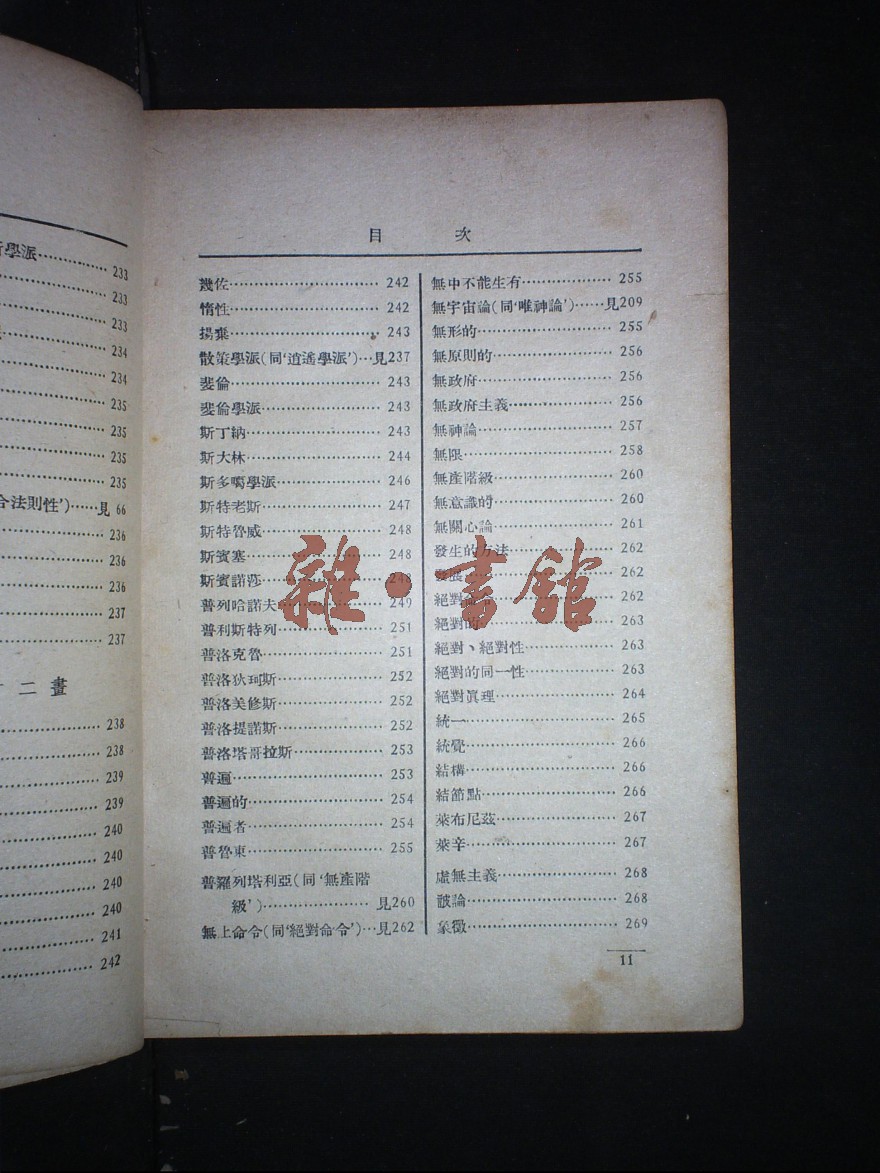 學派⋯⋯ 233
233
233
234
234
235
235
235
235
合法則性’)⋯⋯見 66
236
236
236
237
237
二畫
238
238
239
239
240
240
240
240
241
242
目 次
幾佐⋯⋯ 242
惰性⋯⋯ 242
揚棄⋯⋯ 243
散策學派(同‘逍遙學派’)⋯見237
斐倫⋯⋯ 243
斐倫學派⋯⋯ 243
斯丁納⋯⋯ 243
斯大林⋯⋯ 244
斯多噶學派⋯⋯ 246
斯特老斯⋯⋯ 247
斯特魯威⋯⋯ 248
斯賓塞⋯⋯ 248
斯賓諾莎⋯⋯ 248
普列哈諾夫⋯⋯ 249
普利斯特列⋯⋯ 251
普洛克魯⋯⋯ 251
普洛狄珂斯⋯⋯ 252
普洛美修斯⋯⋯ 252
普洛提諾斯⋯⋯ 252
普洛塔哥拉斯⋯⋯ 253
普遍⋯⋯ 253
普遍的⋯⋯ 254
普遍者⋯⋯ 254
普魯東⋯⋯ 255
普羅列塔利亞(同‘無產階
級’)⋯⋯ 見260
無上命令(同‘絕對命令’)⋯見262
無中不能生有⋯⋯ 255
無宇宙論(同‘唯神論’)⋯⋯見209
無形的⋯⋯ 255
無原則的⋯⋯ 256
無政府⋯⋯ 256
無政府主義⋯⋯ 256
無神論⋯⋯ 257
無限⋯⋯ 258
無產階級⋯⋯ 260
無意識的⋯⋯ 260
無關心論⋯⋯ 261
發生的方法⋯⋯ 262
發展⋯⋯ 262
絕對⋯⋯ 262
絕對的⋯⋯ 263
絕對、絕對性⋯⋯ 263
絕對的同一性⋯⋯ 263
絕對眞理⋯⋯ 264
統一⋯⋯ 265
統覺⋯⋯ 266
結構⋯⋯ 266
結節點⋯⋯ 266
萊布尼茲⋯⋯ 267
萊辛⋯⋯ 267
虛無主義⋯⋯ 268
詖論⋯⋯ 268
象徵⋯⋯ 269
11
雜·書館